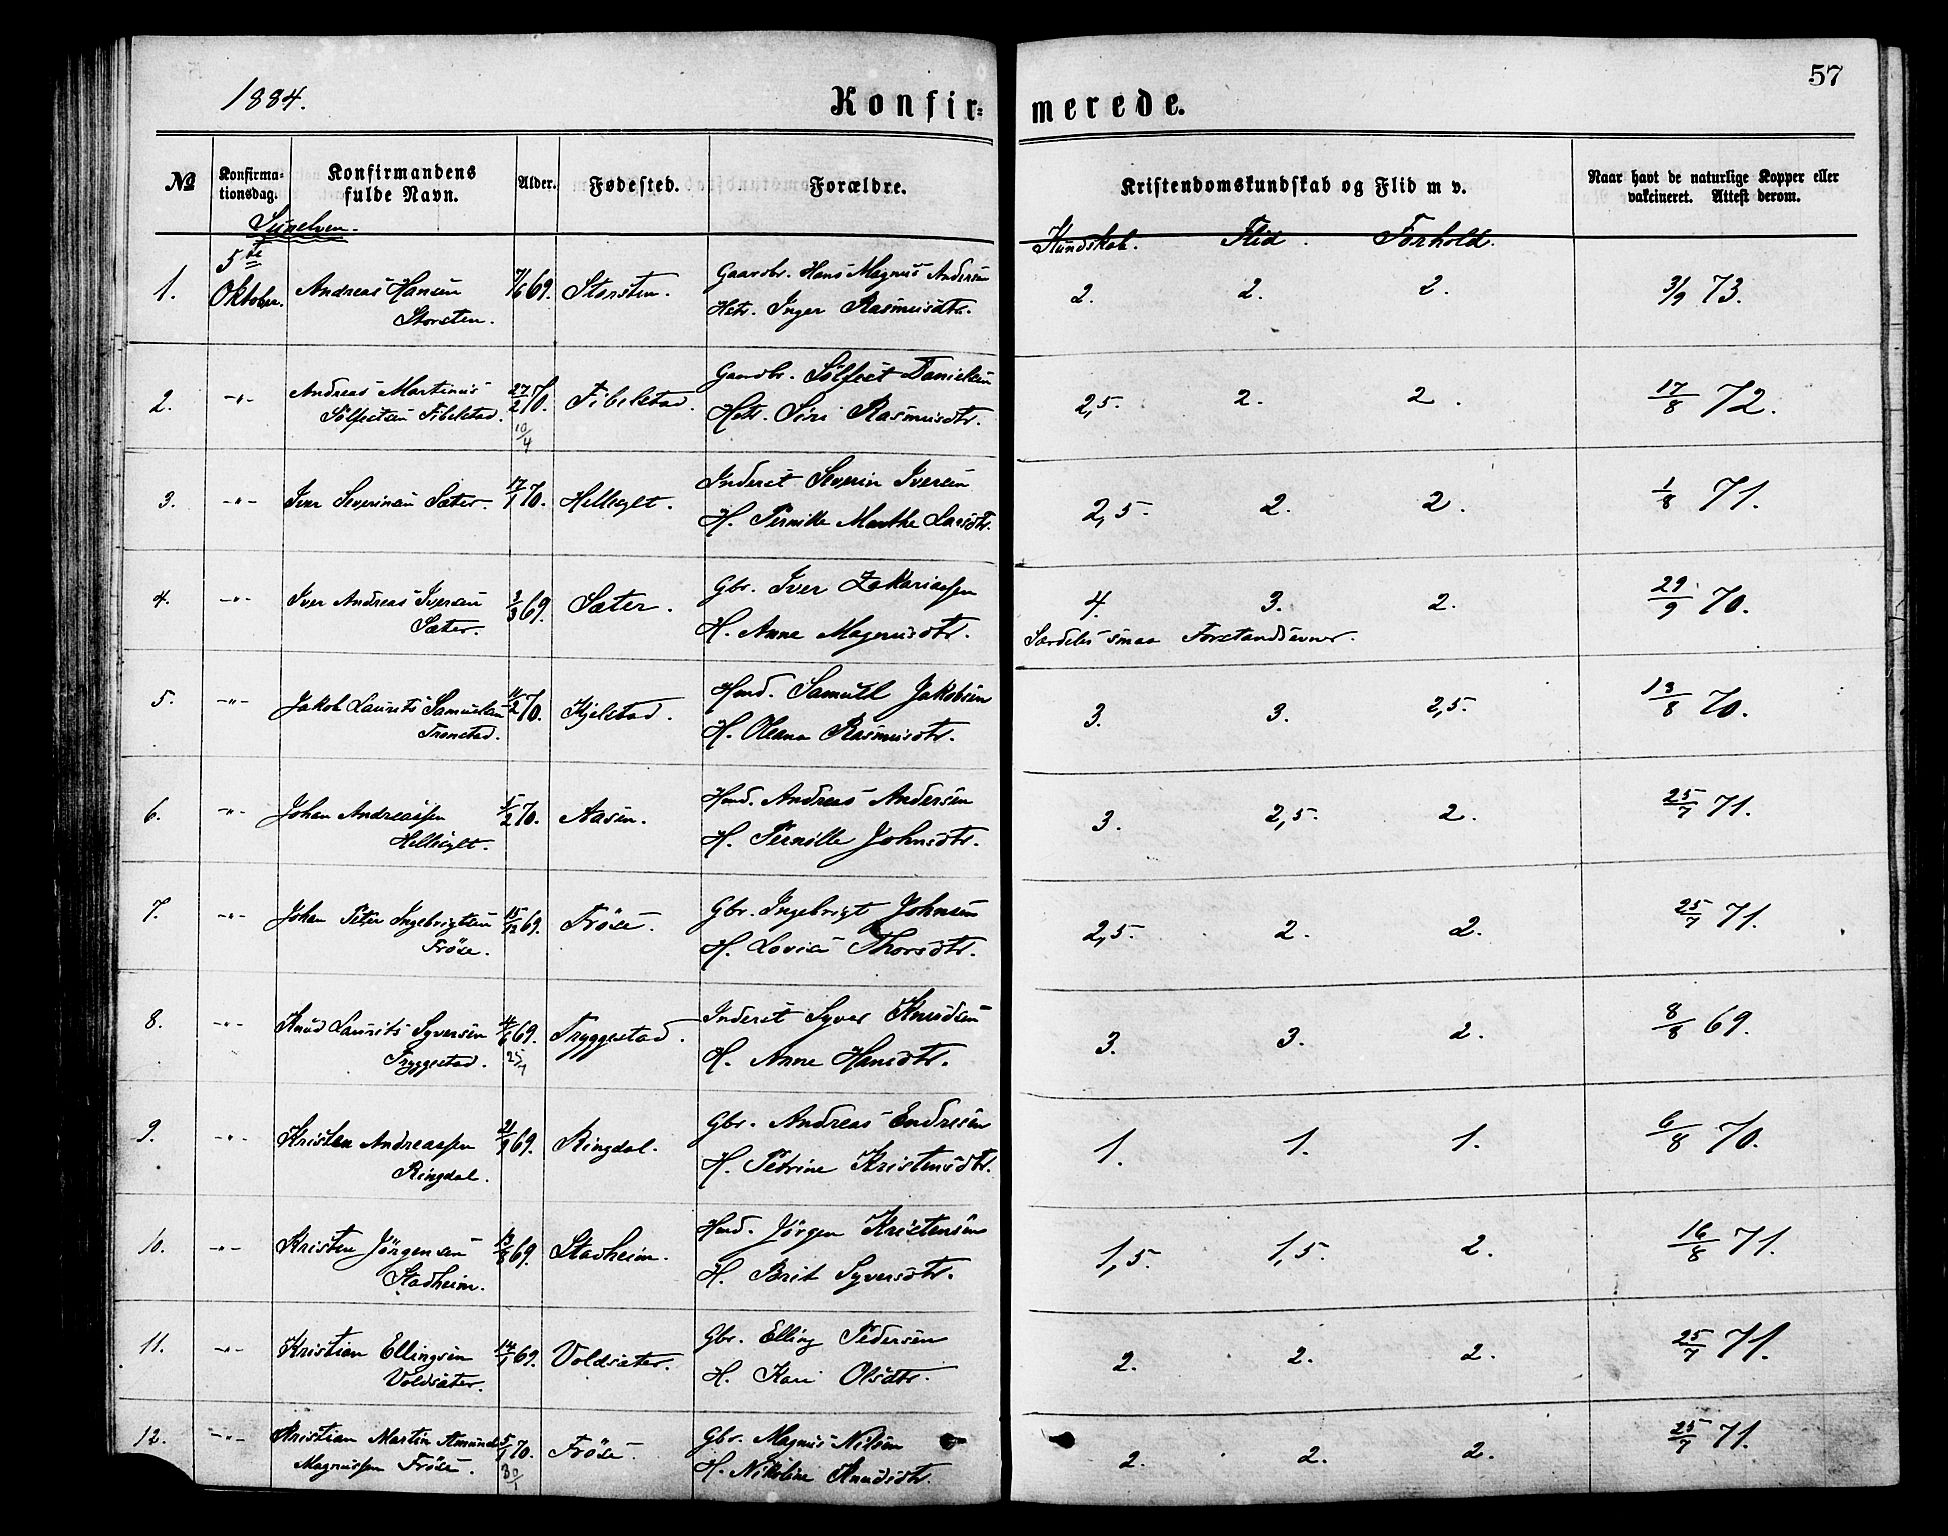 57
1884.
Konfir= merede.
№ Konfirma-tionsdag. Konfirmandens fulde Navn. Alder. Fødested. Forældre. Kristendomskundskab og Flid m v. Naar havt de naturlige Kopper eller vakcineret. Attest derom.
Sunelven.
Kundskab. Flid. Forhold.
5te Gaardbr. Hans Magnus Andersen
1. Oktober. Andreas Hansen 7/6 69. Storsten. 2. 2. 2. 3/9 73.
Storsten. Hstr. Inger Rasmusdtr.
Gaardbr. Sølfest Danielsen
2. -"- Andreas Martinus 27/2 70. Fibelstad. 2,5. 2. 2. 17/8 72.
Sølfestsen Fibelstad. 10/4 Hstr. Siri Rasmusdtr.
Inderst Severin Iversen
3. -"- Iver Severinsen Sæter. 17/1 70. Hellesylt. 2,5. 2. 2. 1/8 71.
H. Pernille Marthe Larsdtr.
Gbr. Iver Zakariassen
4. -"- Iver Andreas Iversen 2/3 69. Sæter. 4. 3. 2. 29/9 70.
Sæter. H. Anne Magnusdtr. Særdeles smaa Forstandsevner.
Hmd. Samuel Jakobsen
5. -"- Jakob Laurits Samuelsen 11/2 70. Kjelstad. 3. 3. 2,5. 13/8 70.
Tronstad. H. Oleana Rasmusdtr.
Hmd. Andreas Andersen
6. -"- Johan Andreassen 5/2 70. Aasen. 3. 2,5. 2. 25/7 71.
Hellesylt. H. Pernille Johnsdtr.
Gbr. Ingebrigt Johnsen
7. -"- Johan Peter Ingebrigtsen 15/12 69. Fröse. 2,5. 2. 2. 25/7 71.
Fröse. H. Lovise Thorsdtr.
Inderst Syver Knudsen
8. -"- Knud Laurits Syversen 11/6 69. Tryggestad. 3. 3. 2. 8/8 69.
Tryggestad. 25/7 H. Anne Hansdtr.
Gbr. Andreas Endresen
9. -"- Kristen Andreassen 21/9 69. Ringdal. 1. 1. 1. 6/8 70.
Ringdal. H. Petrine Kristensdtr.
Hmd. Jörgen Kristensen
10. -"- Kristen Jörgensen 13/8 69. Stadheim. 1,5. 1,5. 2. 16/8 71.
Stadheim. H. Brit Syversdtr.
Gbr. Elling Pedersen
11. -"- Kristian Ellingsen 14/1 69. Voldsæter. 2. 2. 2. 25/7 71.
Voldsæter. H. Kari Olsdtr.
Gbr. Magnus Nilsen
12. -"- Kristian Martin Amund 5/1 70. Fröse. 2. 2. 2. 25/7 71.
Magnussen Fröse. 30/1 H. Nikoline Knudsdtr.